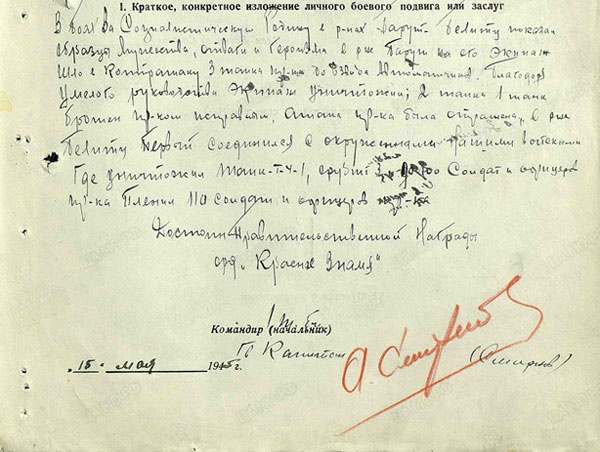 I. Краткое, конкретное изложение личного боевого подвига или заслуг
В боях за Социалистическую Родину в р-нах Барут-Белитц показал
образцы мужества, отваги и Героизма в р-не Барут на его Экипаж
шло в Контратаку 3 танка пр-ка до взвода автоматчиков. Благодоря
Умелого руководства Экипаж уничтожил 2 танка 1 танк
брошен пр-ком исправным, Атака пр-ка была отражена, в р-не
Белитц Первый Соединился с окруженными нашими
Где уничтожил танк-Т-4-1, Солдат и офицеров
пр-ка Пленил 110 солдат и офицеров пр-ка
Достоин Правительственной Награды
орд. „Красное Знамя"
Командир (начальник)
Гв Капитан
(Смирнов)
„15" мая 1945г.